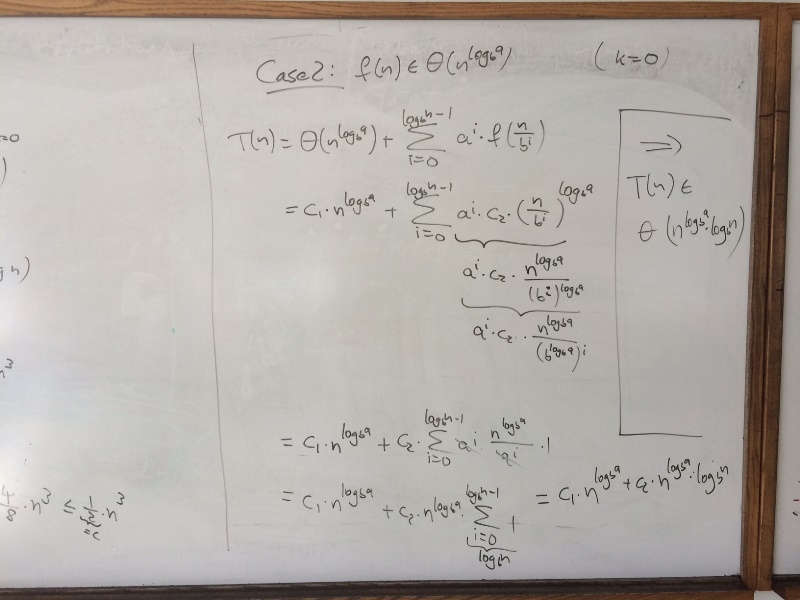 =0
)
g n)
n^3
4/8 · n^3 ≤ 1/2 · n^3
= c
Case 2: f(n) ∈ Θ(n^{log_b a}) (k=0)
T(n) = Θ(n^{log_b a}) + Σ_{i=0}^{log_b n-1} a^i · f(n/b^i)
= c_1 · n^{log_b a} + Σ_{i=0}^{log_b n-1} a^i · c_2 · (n/b^i)^{log_b a}
a^i · c_2 · n^{log_b a}/(b^i)^{log_b a}
a^i · c_2 · n^{log_b a}/(b^{log_b a})^i
= c_1 · n^{log_b a} + c_2 · Σ_{i=0}^{log_b n-1} a^i n^{log_b a}/a^i · 1
= c_1 · n^{log_b a} + c_2 · n^{log_b a} · Σ_{i=0}^{log_b n-1} 1 = c_1 · n^{log_b a} + c_2 · n^{log_b a} · log_b n
log_b n
⇒
T(n) ∈
Θ(n^{log_b a} · log_b n)